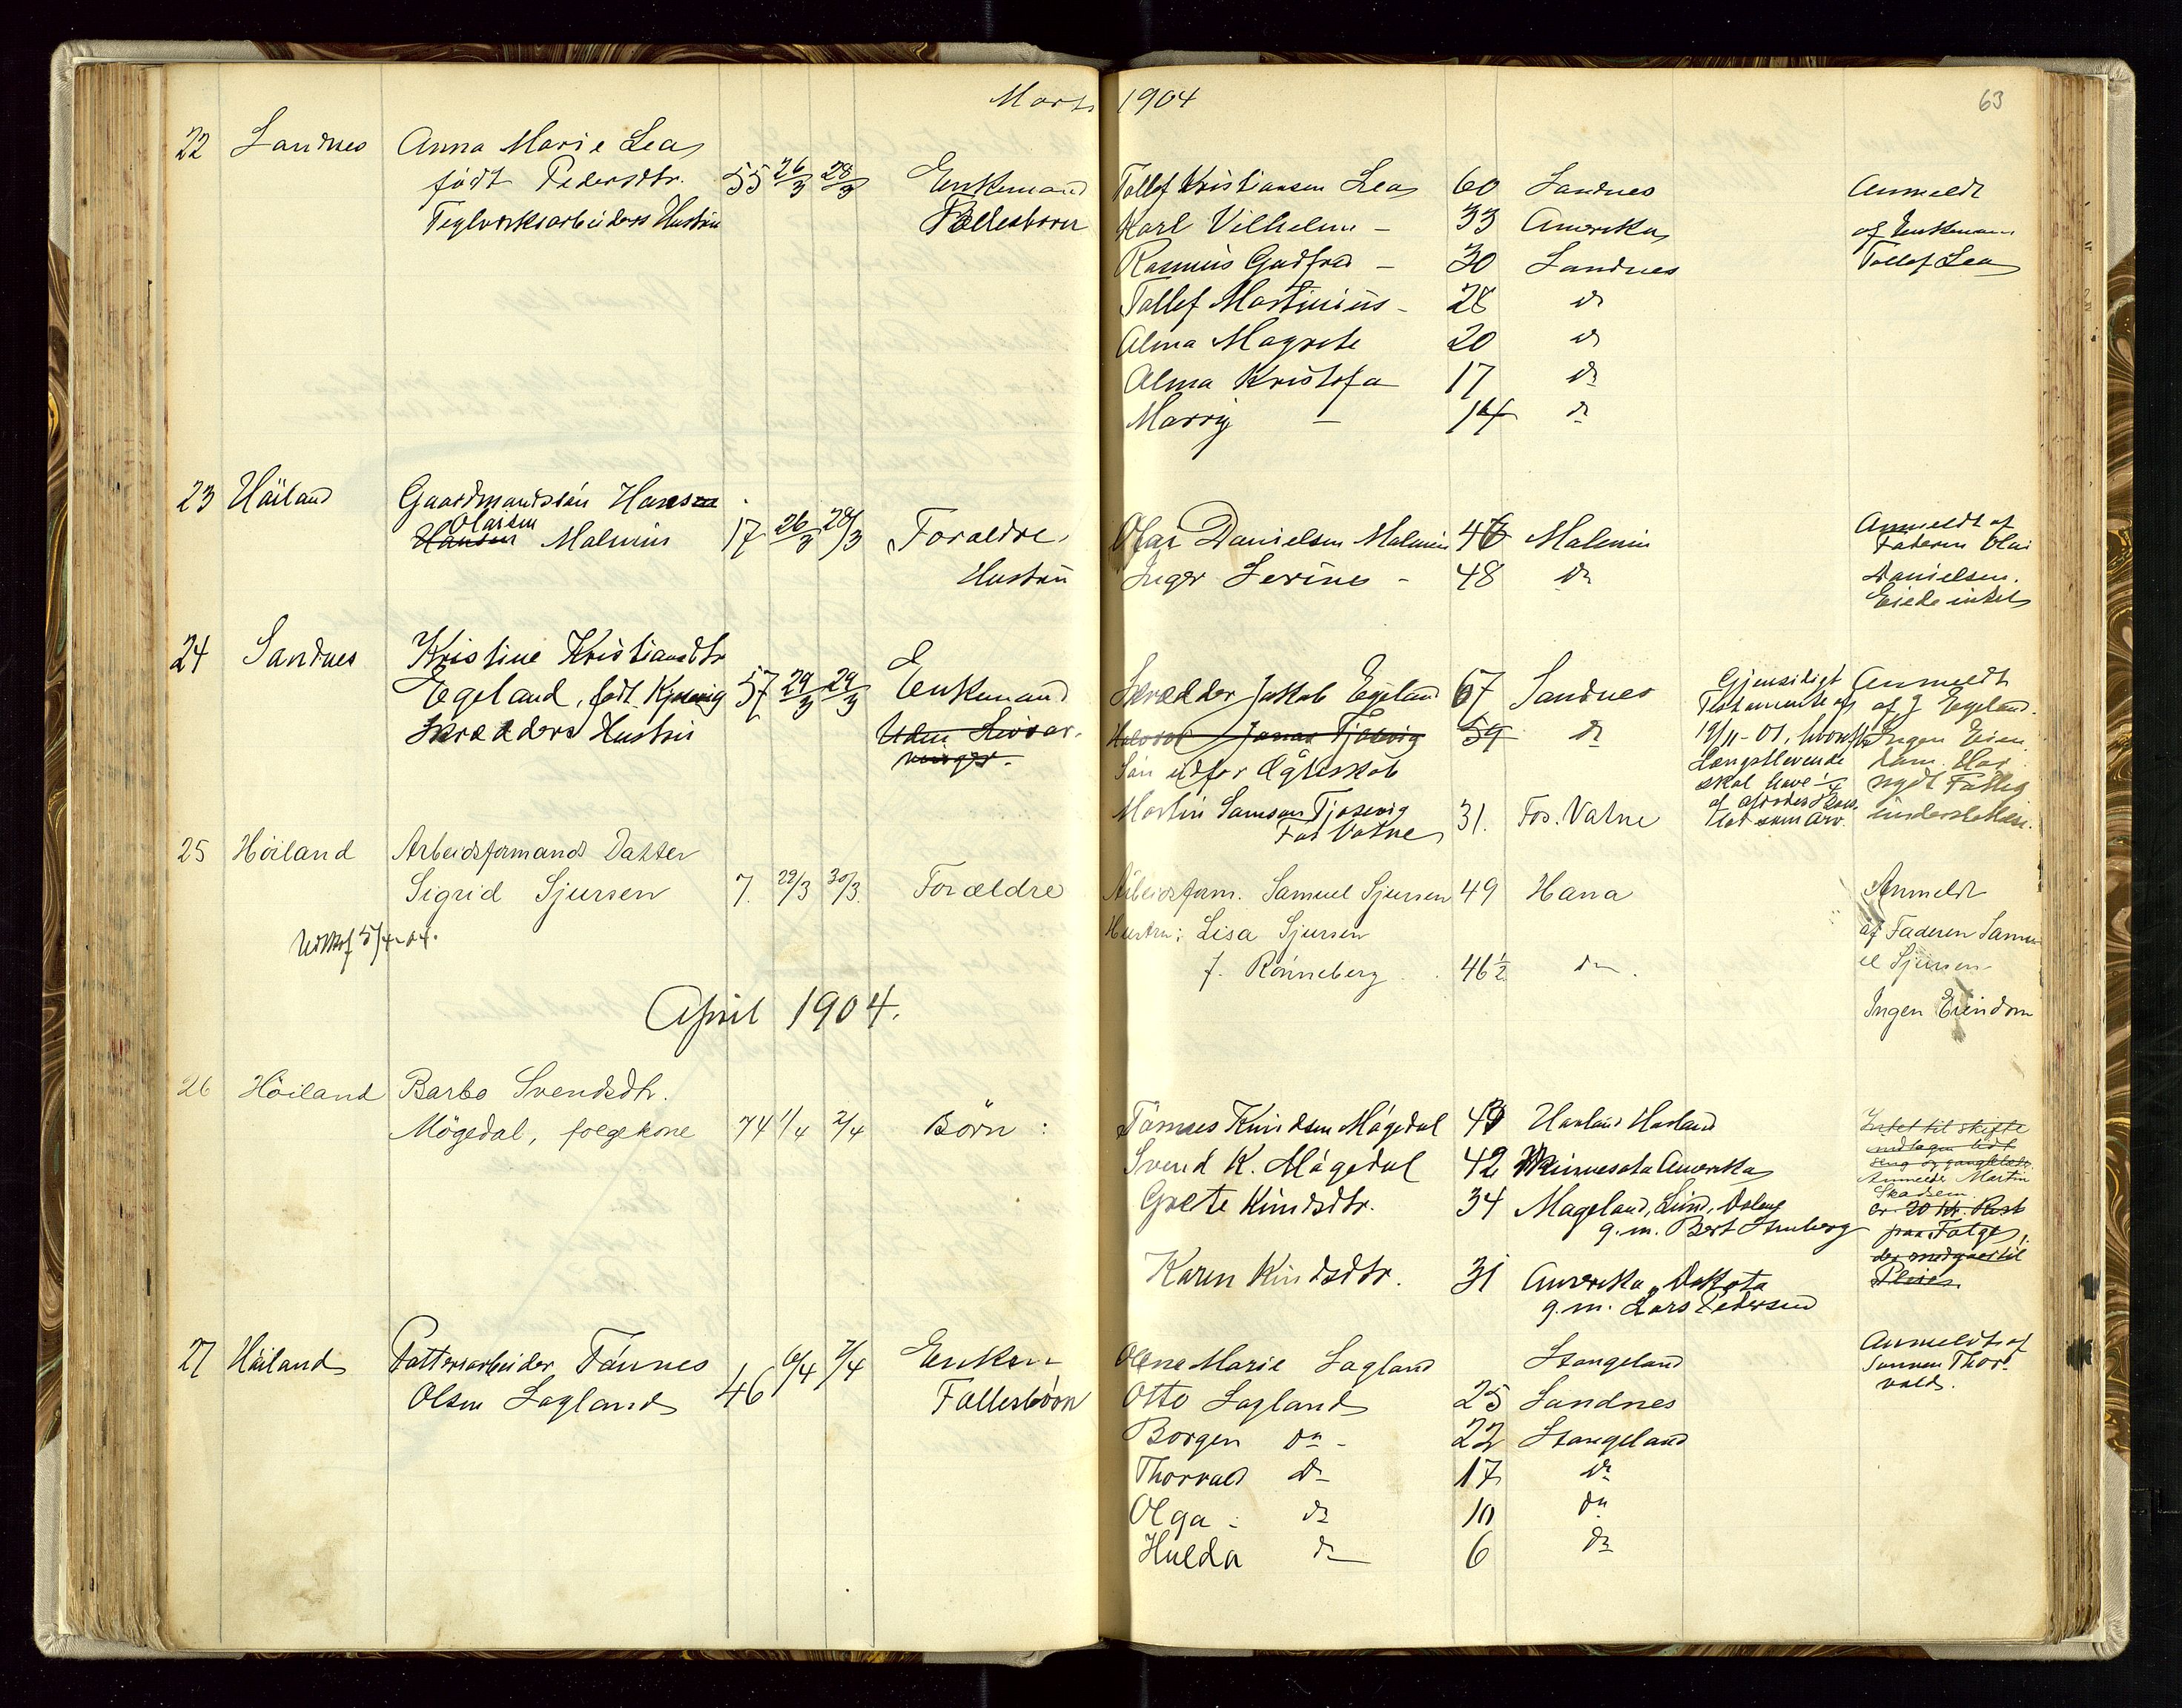 Marts 1904
63
22 Sandnes Anna Marie Lea
født Pedersdtr. 55 26/3 28/3 Enkemand Tollef Kristiansen Lea 60 Sandnes Anmeldt
Teglverksarbeiders Hustru Fællesbørn Karl Vilhelm - 33 Amerika af Enkemann
Rasmus Gudfred - 30 Sandnes Tollef Lea
Tollef Martinius - 28 do
Alma Magrete 20 do
Alma Kristofa 17 do
Marry - 14 do
23 Høiland Gaardmandssøn Hans
Olaisen
Hansen Malmin 17 26/3 28/3 Forældre Olai Danielsen Malmin 46 Malmin Anmeldt af
Faderen Olai
Hustru Inger Serine - 48 do Danielsen.
Eiede intet
24 Sandnes Kristine Kristiansdtr
Egeland, født Kjosvig 57 29/3 29/3 Enkemand Skrædder Jakob Egeland 67 Sandnes Gjensidigt Testamente af Anmeldt af J Egeland.
Skrædders Hustru Uden Livsarvinger. Jonas Tjosevig 59 do 19/11-01, hvorefter Ingen Eiendom. Har
Søn udfor Ægteskab Længstlevende skal have nydt Fattig
Martin Samson Tjosevig 31. Fos. Vatne understøttelse.
Fos Vatne
25 Høiland Arbeidsformands Datter
Sigrid Sjursen 7. 29/3 30/3. Forældre Arbeidsform. Samuel Sjursen 49 Hana Anmeldt
5/4-04. Hustru: Lisa Sjursen af Faderen Samu
f. Rønneberg 46 1/2 do. el Sjursen
April 1904. Ingen Eiendom
26 Höiland Barbo Svendsdtr.
Mögedal, folgekone 74 1/4 2/4 Börn: Tønnes Knudsen Møgedal 49 Harland Intet til skifte
Svend K. Møgedal 42 Minnesota Amerika undtagen lidt seng og gangklæder.
Anmeldt Martin Skadsem
Grete Knudsdtr. 34 Mageland, Lund, Dalane er 20 Kr. Rest
g.m. Bert Stenberg paa Følge,
Karen Knudsdtr. 31 Amerika, Dakota der medgaar til Pleie.
g.m. Lars Pedersen
27 Høiland Pottersarbeider Tønnes 6/4 7/4 Enken Olene Marie Lagland Stangeland Anmeldt af
Olsen Lagland 46 Fællesbørn Otto Lagland 25 Sandnes Sønnen Thorvald.
Borgen do - 22 Stangeland
Thorvald do 17 do
Olga - do 10 do
Hulda do 6 do